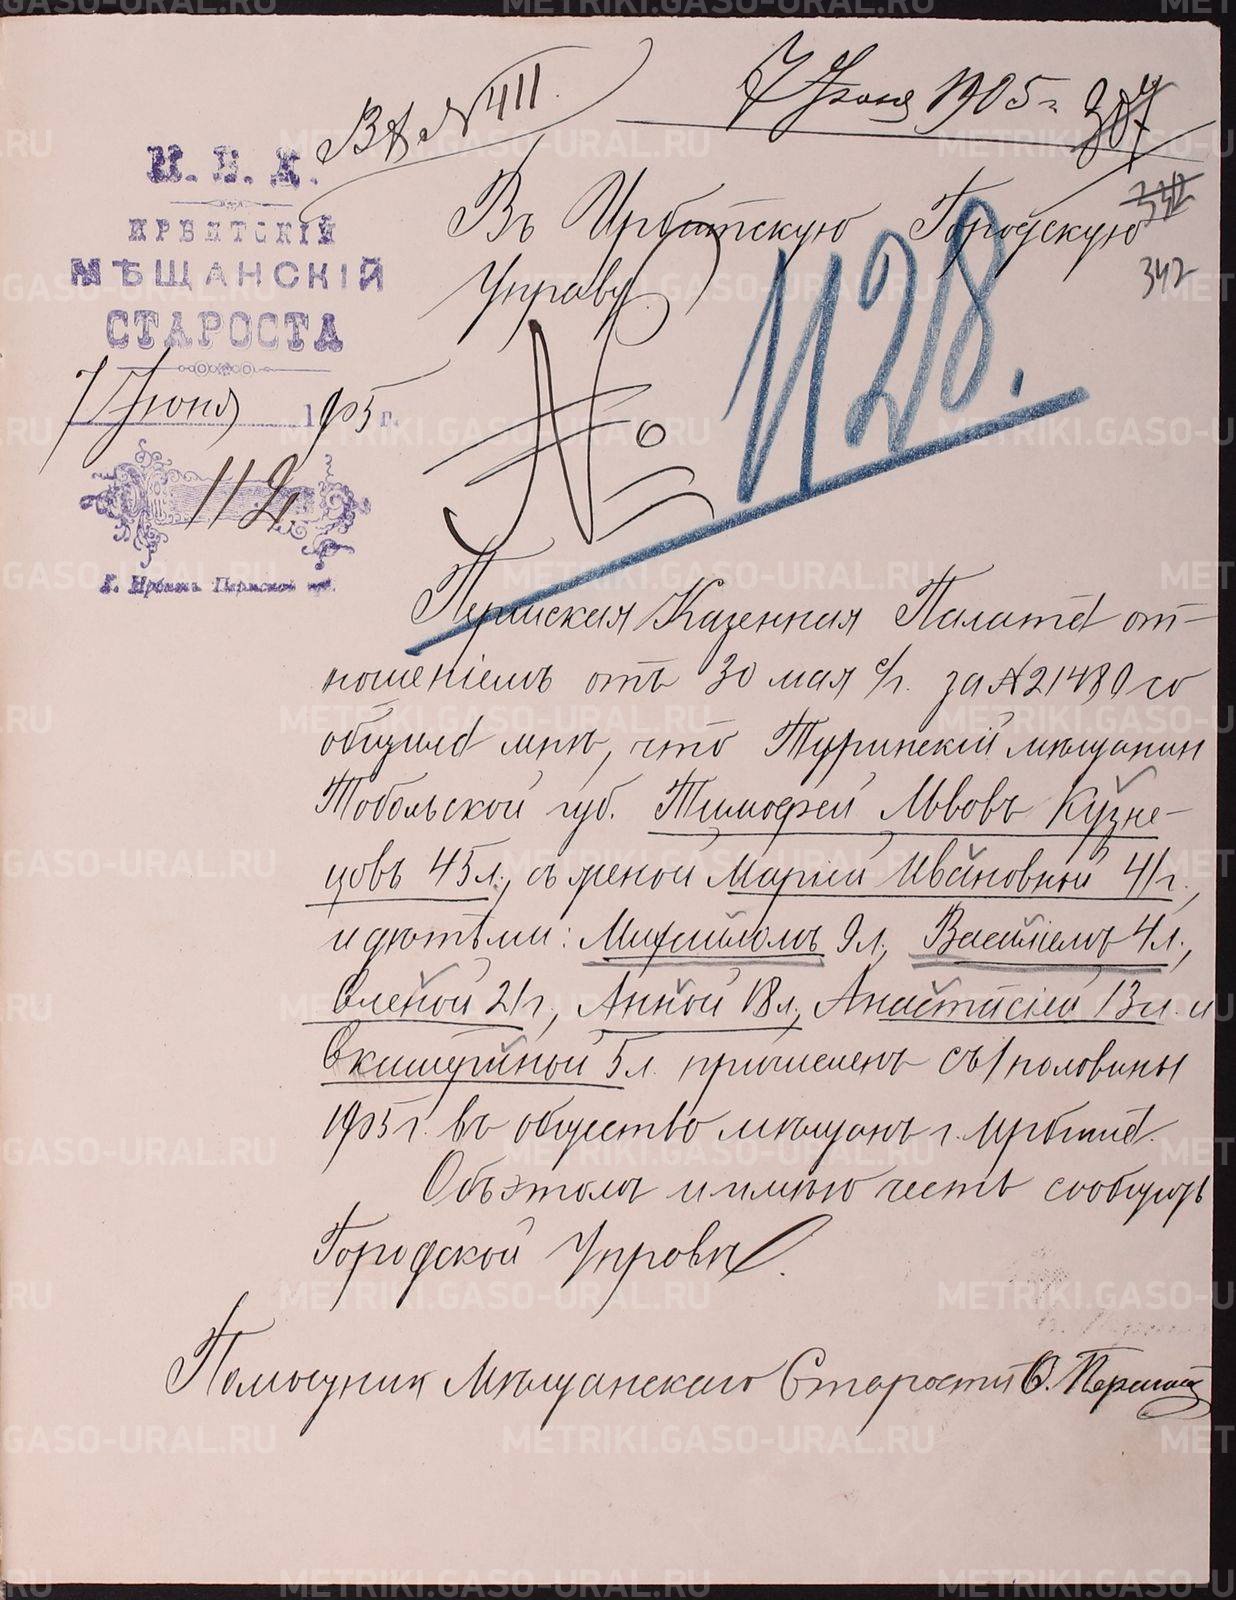 Вх № 411.
7 Июня 1905 г.
387
342
342
И. В. Д.
ИРБИТСКІЙ
МѢЩАНСКІЙ
СТАРОСТА
7 Июня 1905 г.
112
Г. Ирбитъ Пермской губ.
Въ Ирбитскую Городскую
Управу
№ 1128.
Пермская Казенная Палата от-
ношеніемъ отъ 30 мая с/г. за № 21480 со
общила мнѣ, что Туринскій мѣщанин
Тобольской губ. Тимофей Львовъ Кузне-
цовъ 45 л., съ женой Маріей Ивановной 41 г.,
и дѣтьми: Михаиломъ 9 л., Василіемъ 4 л.,
Еленой 21 г., Анной 18 л., Анастасіей 13 л. и
Екатериной 5 л. причисленъ съ 1 половины
1905 г. въ общество мѣщанъ г. Ирбита.
Объ этомъ и имѣю честь сообщить
Городской Управѣ.
Помощник Мѣщанскаго Старосты
METRIKI.GASO-URAL.RU